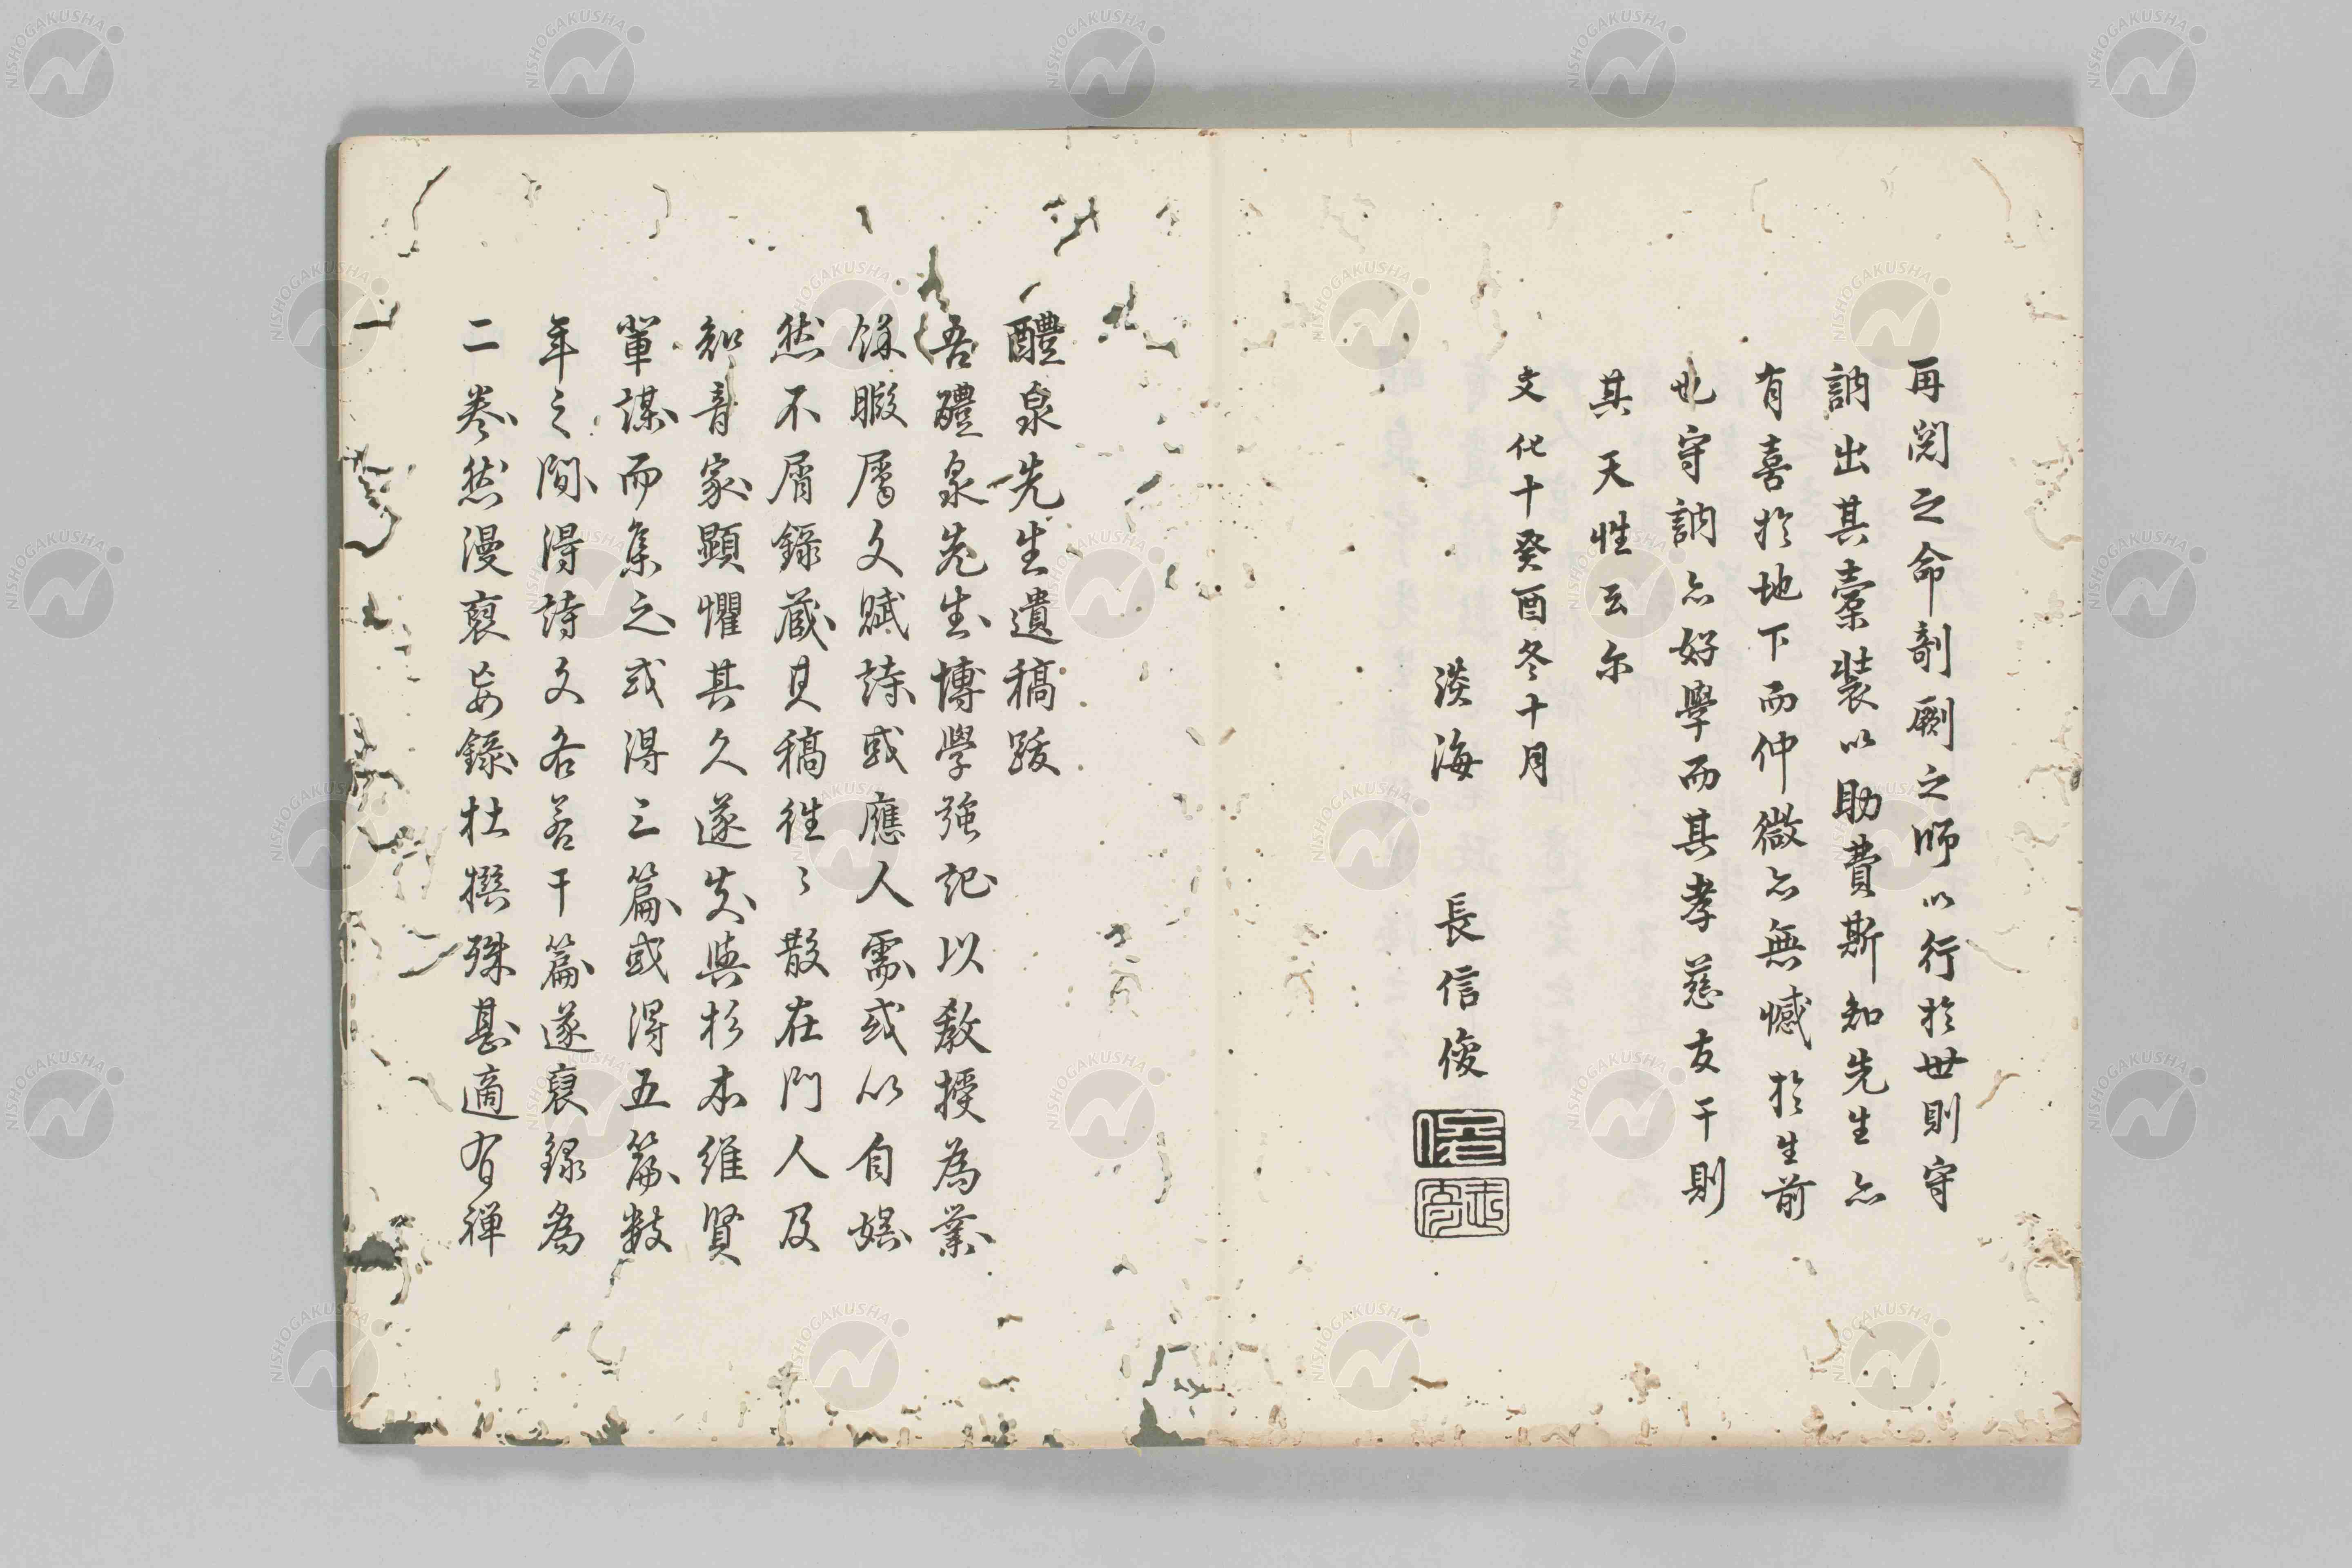 再閲之命剞劂之師以行於世則守
訥出其槖裝以助費斯知先生亦
有喜於地下而仲微亦無憾於生前
也守訥亦好學而其孝慈友于則
其天性云尔
文化十癸酉冬十月
淡海 長信俊
醴泉先生遺稿跋
吾醴泉先生博學強記以教授為業
餘暇属文賦詩或應人需或以自娯
然不屑錄蔵其稿往〻散在門人及
知音家顕懼其久遂失與杉本維賢
輩謀而集之或得三篇或得五篇数
年之間得詩文各若干篇遂裒録為
二巻然漫裒妄錄杜撰殊甚適有禅
NISHOGAKUSHA